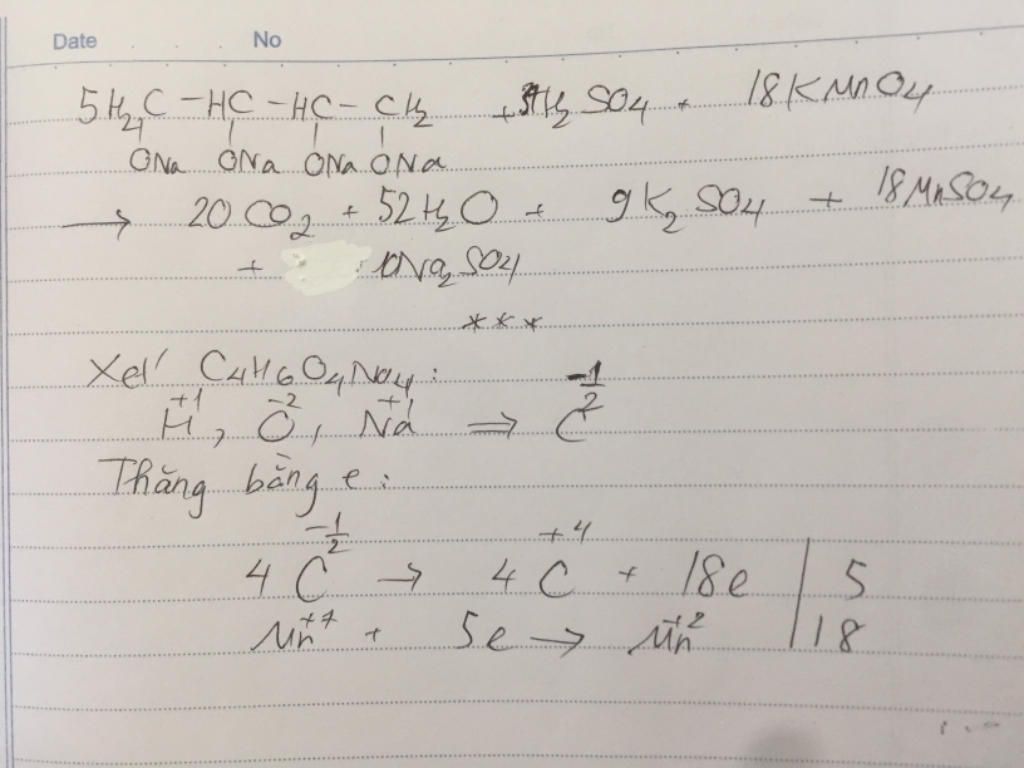 Date No
5H₂C – HC – HC – CH₂ + 37H₂SO₄ + 18KMnO₄
ONa ONa ONa ONa
→ 20CO₂ + 52H₂O + 9K₂SO₄ + 18MnSO₄
+ 10Na₂SO₄
***
Xét C₄H₆O₄Na₄:
+1 -2 +1 -1/2
H, O, Na ⇒ C
Thăng bằng e:
-1/2 +4
4C → 4C + 18e | 5
Mn⁺⁷ + 5e → Mn⁺² | 18